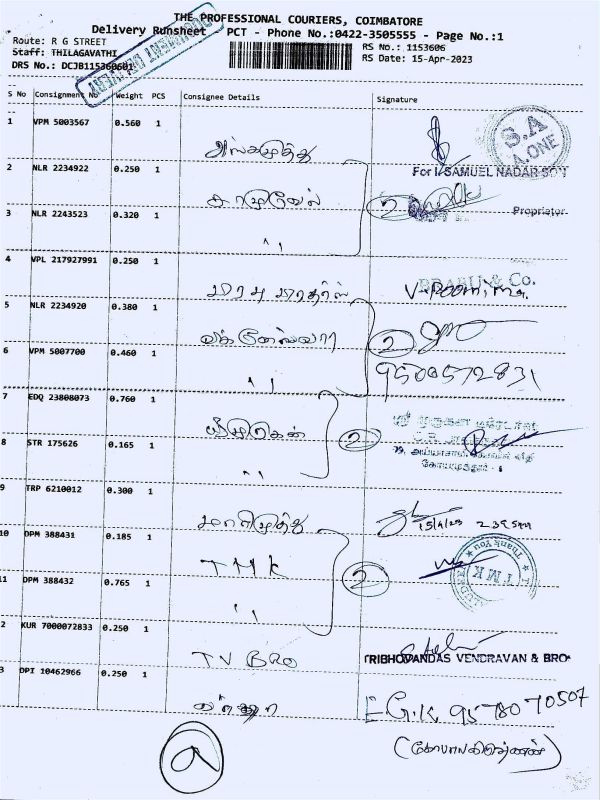 THE PROFESSIONAL COURIERS, COIMBATORE
Delivery Runsheet PCT - Phone No.:0422-3505555 - Page No.:1
Route: R G STREET
RS No.: 1153606
Staff: THILAGAVATHI
RS Date: 15-Apr-2023
DRS No.: DCJB115360601
DOCUMENT DELIVERY
S No Consignment No Weight PCS Consignee Details Signature
1 VPM 5003567 0.560 1
S.A A.ONE
For I. SAMUEL NADAR SON
2 NLR 2234922 0.250 1 சாமுவேல்
2
Proprietor
3 NLR 2243523 0.320 1 ' '
4 VPL 217927991 0.250 1
PRABU & Co.
5 NLR 2234920 0.380 1 விக்னேஸ்வரா 2
6 VPM 5007700 0.460 1 ' ' 9500572831
7 EDQ 23808073 0.760 1 2
ஸ்ரீ முருகன்
8 STR 175626 0.165 1 ' '
கோயமுத்தூர் - 1
9 TRP 6210012 0.300 1 மாரிமுத்து 15/4/23
10 DPM 388431 0.185 1 TMK 2
Thank You TMK
11 DPM 388432 0.765 1 ' '
2 KUR 7000072833 0.250 1 TV BRO
TRIBHOVANDAS VENDRAVAN & BRO
3 DPI 10462966 0.250 1 E.G.K 9578070507
(கோபாலகிருஷ்ணன்)